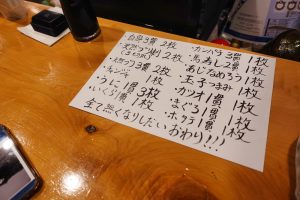 白皿3貫 2枚
天然ブリ刺 2枚
2枚
・チャンジャ 1枚
・うに1貫 3枚
・いくら1貫 1枚
・カンパチ3貫 1枚
・馬あし2貫 1枚
・あじなめろう 1枚
・玉子つまみ 1枚
・カツオ1貫 1枚
・まぐろ1貫 1枚
・ホタテ1貫 1枚
全て無くなりしだいおわり!!!!